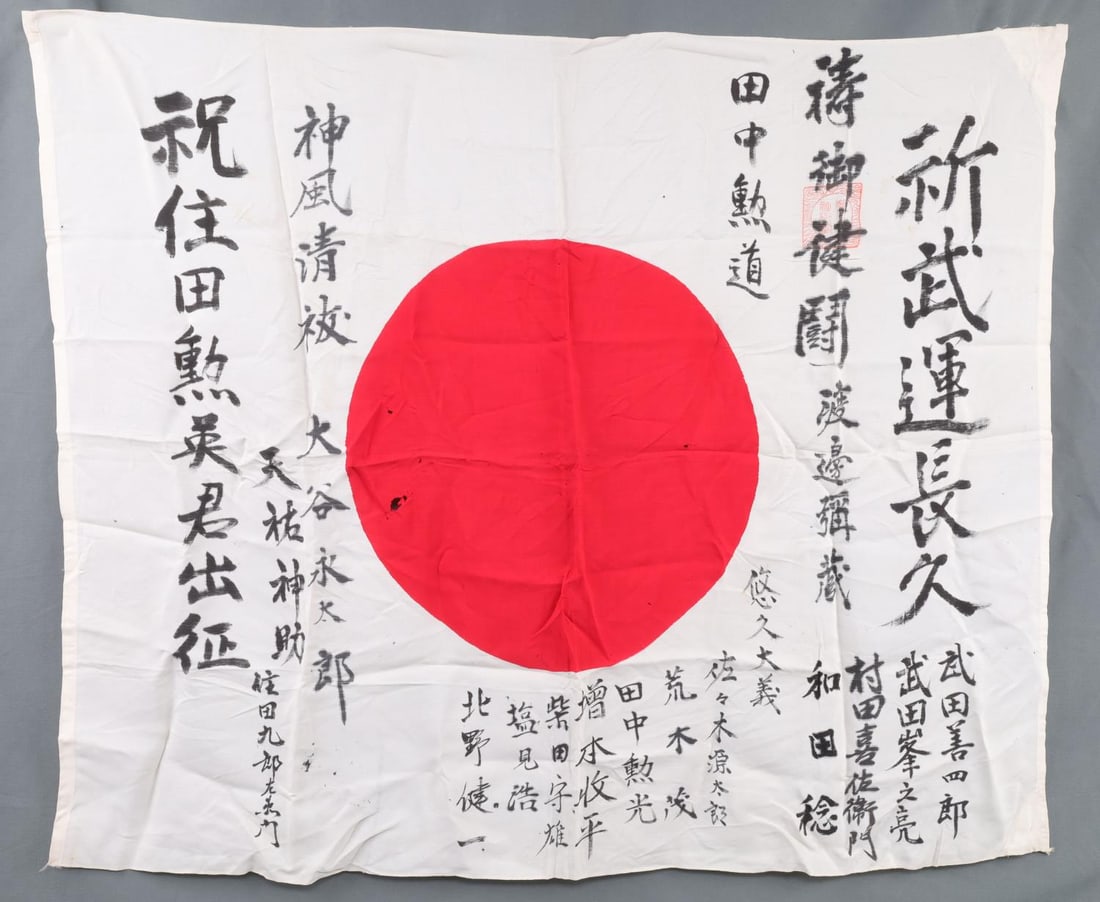 祈武運長久
武田善四郎
武田峯之亮
村田喜佐衛門
禱御健闘 渡邉彌蔵
和田稔
田中勲道
悠久大義
佐々木源太郎
荒木茂
田中勲光
増木收平
柴田守雄
塩見浩
北野健一
神風清祓 大谷永太郎
天祐神助
住田九郎左衛門
祝住田勲英君出征